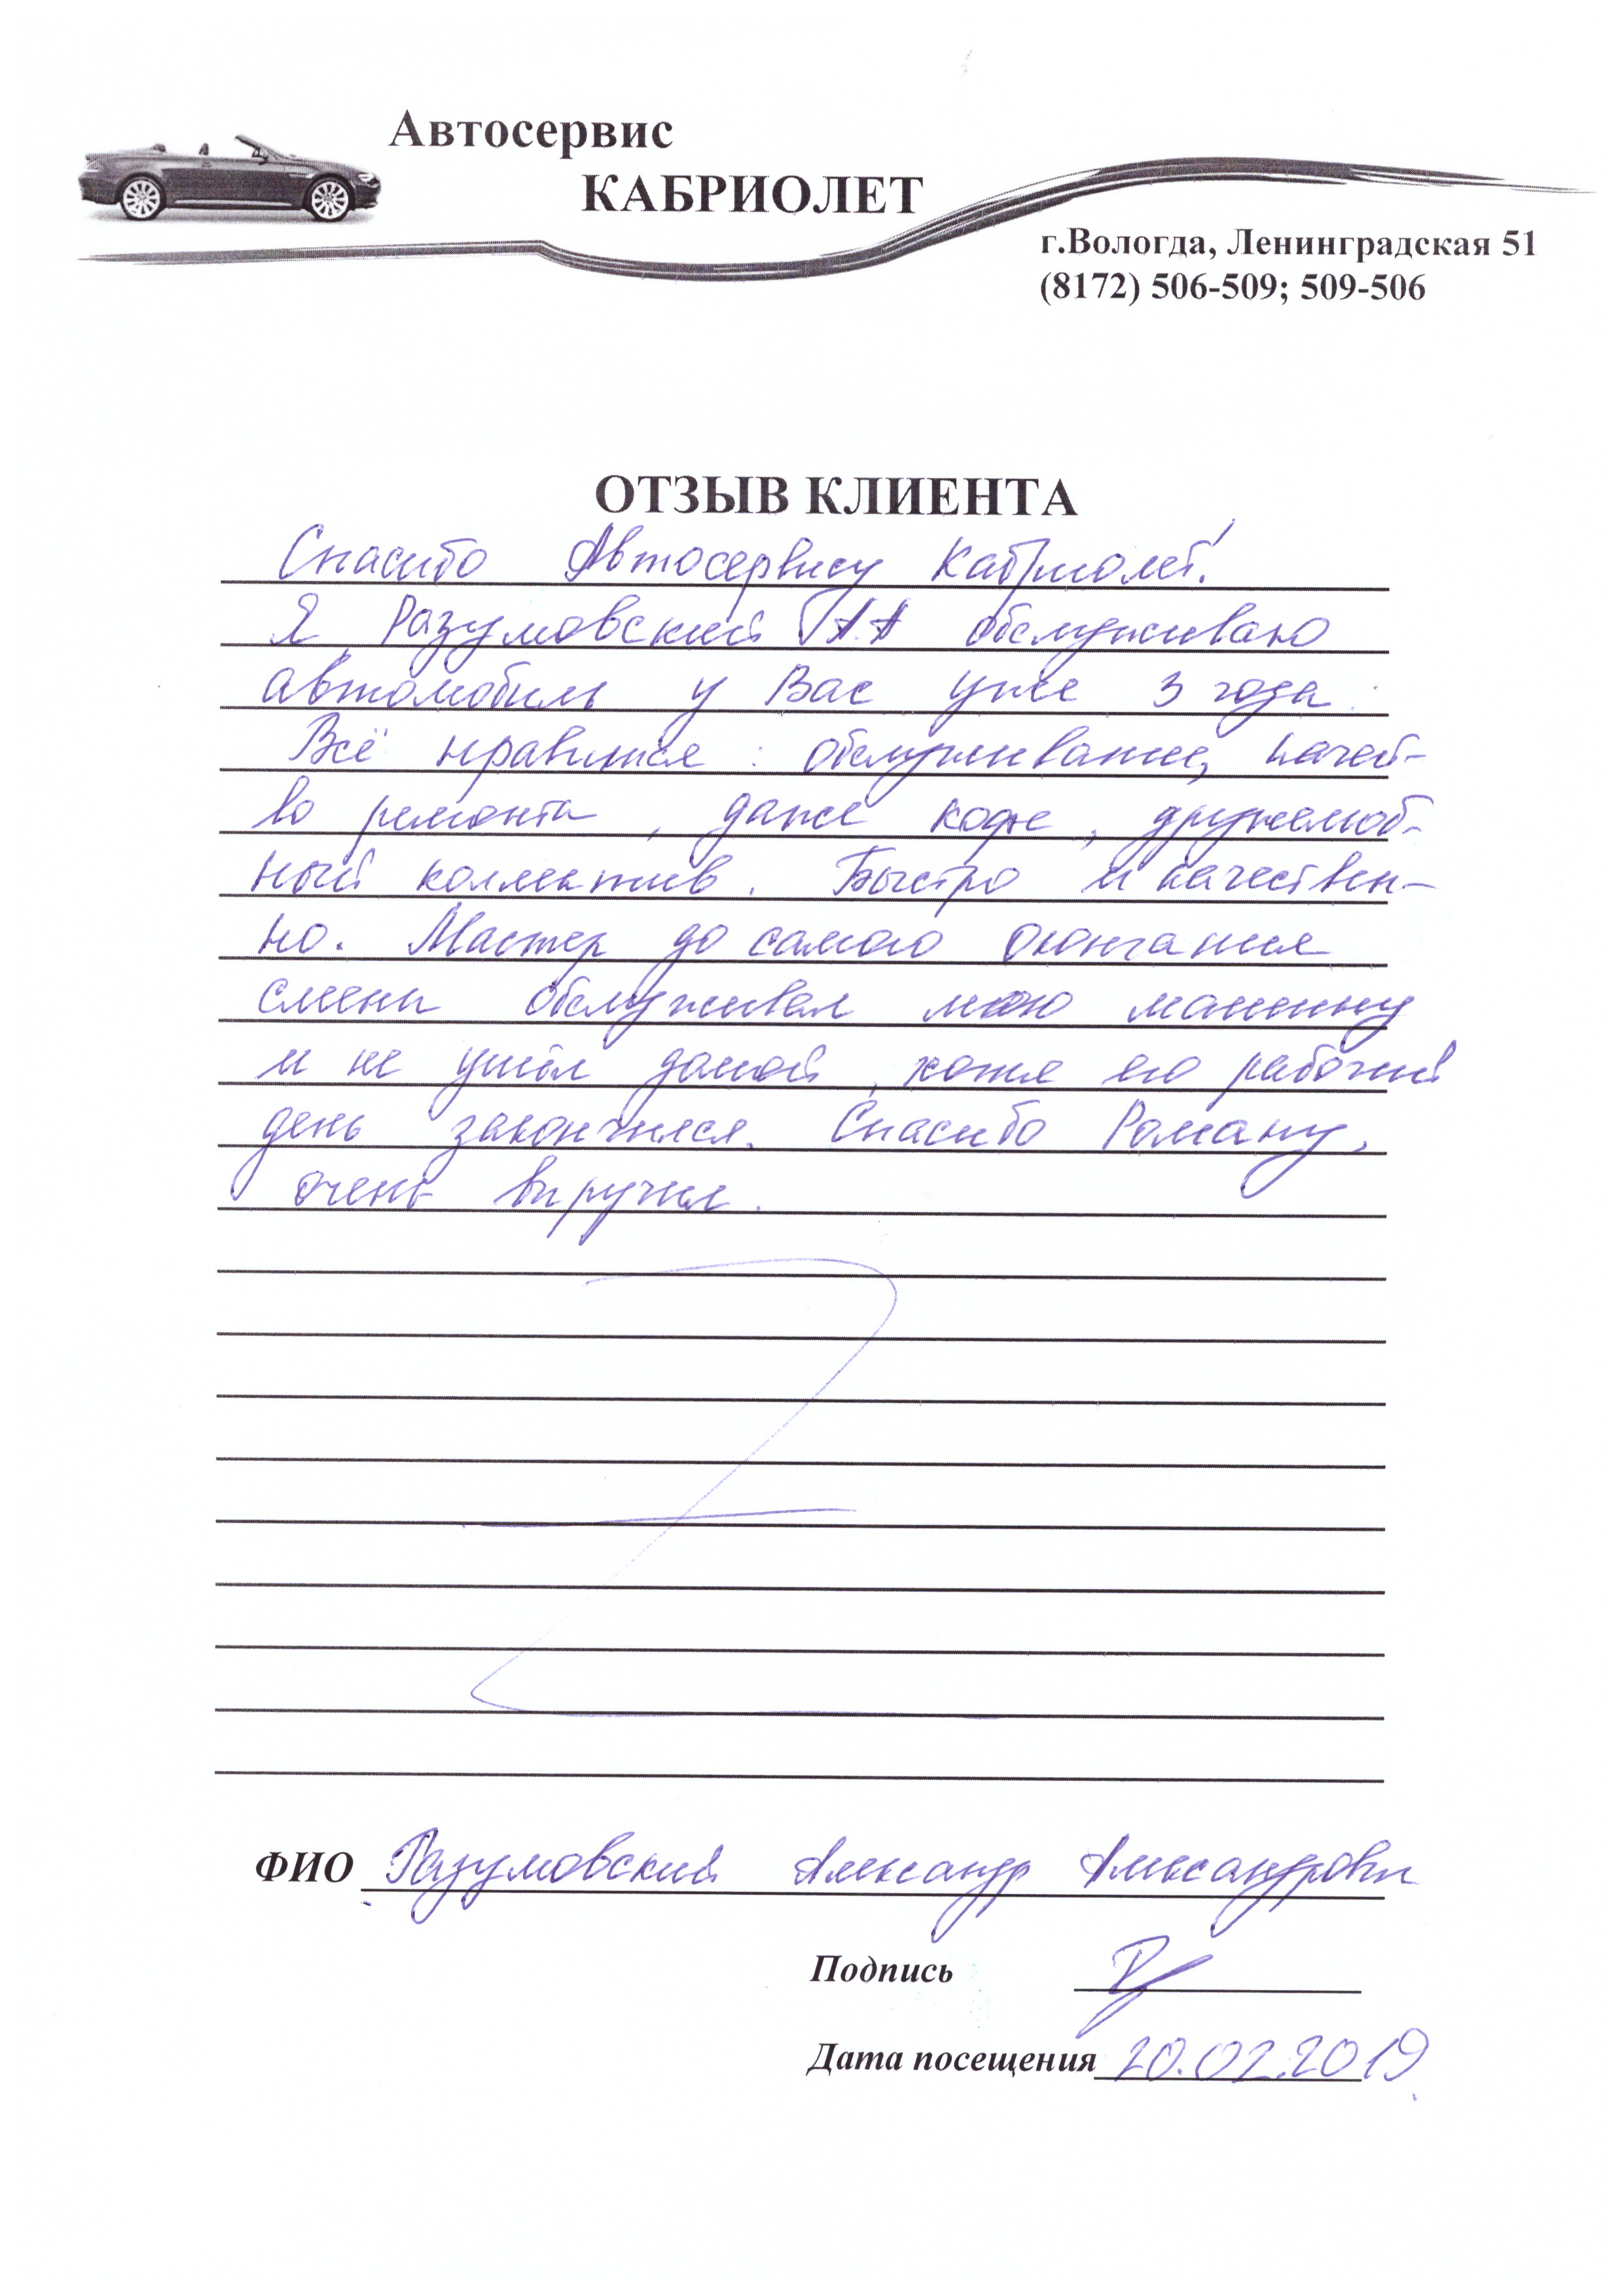 Автосервис
КАБРИОЛЕТ
г.Вологда, Ленинградская 51
(8172) 506-509; 509-506
ОТЗЫВ КЛИЕНТА
Спасибо Автосервису Кабриолет!
Я Разумовский А.А обслуживаю
автомобиль у Вас уже 3 года.
Всё нравится: обслуживание, качест-
во ремонта, даже кофе, дружелюб-
ный коллектив. Быстро и качествен-
но. Мастер до самого окончания
смены обслуживал мою машину
и не ушёл домой, хотя его рабочий
день закончился. Спасибо Роману,
очень выручил.
ФИО Разумовский Александр Александрович
Подпись
Дата посещения 20.02.2019